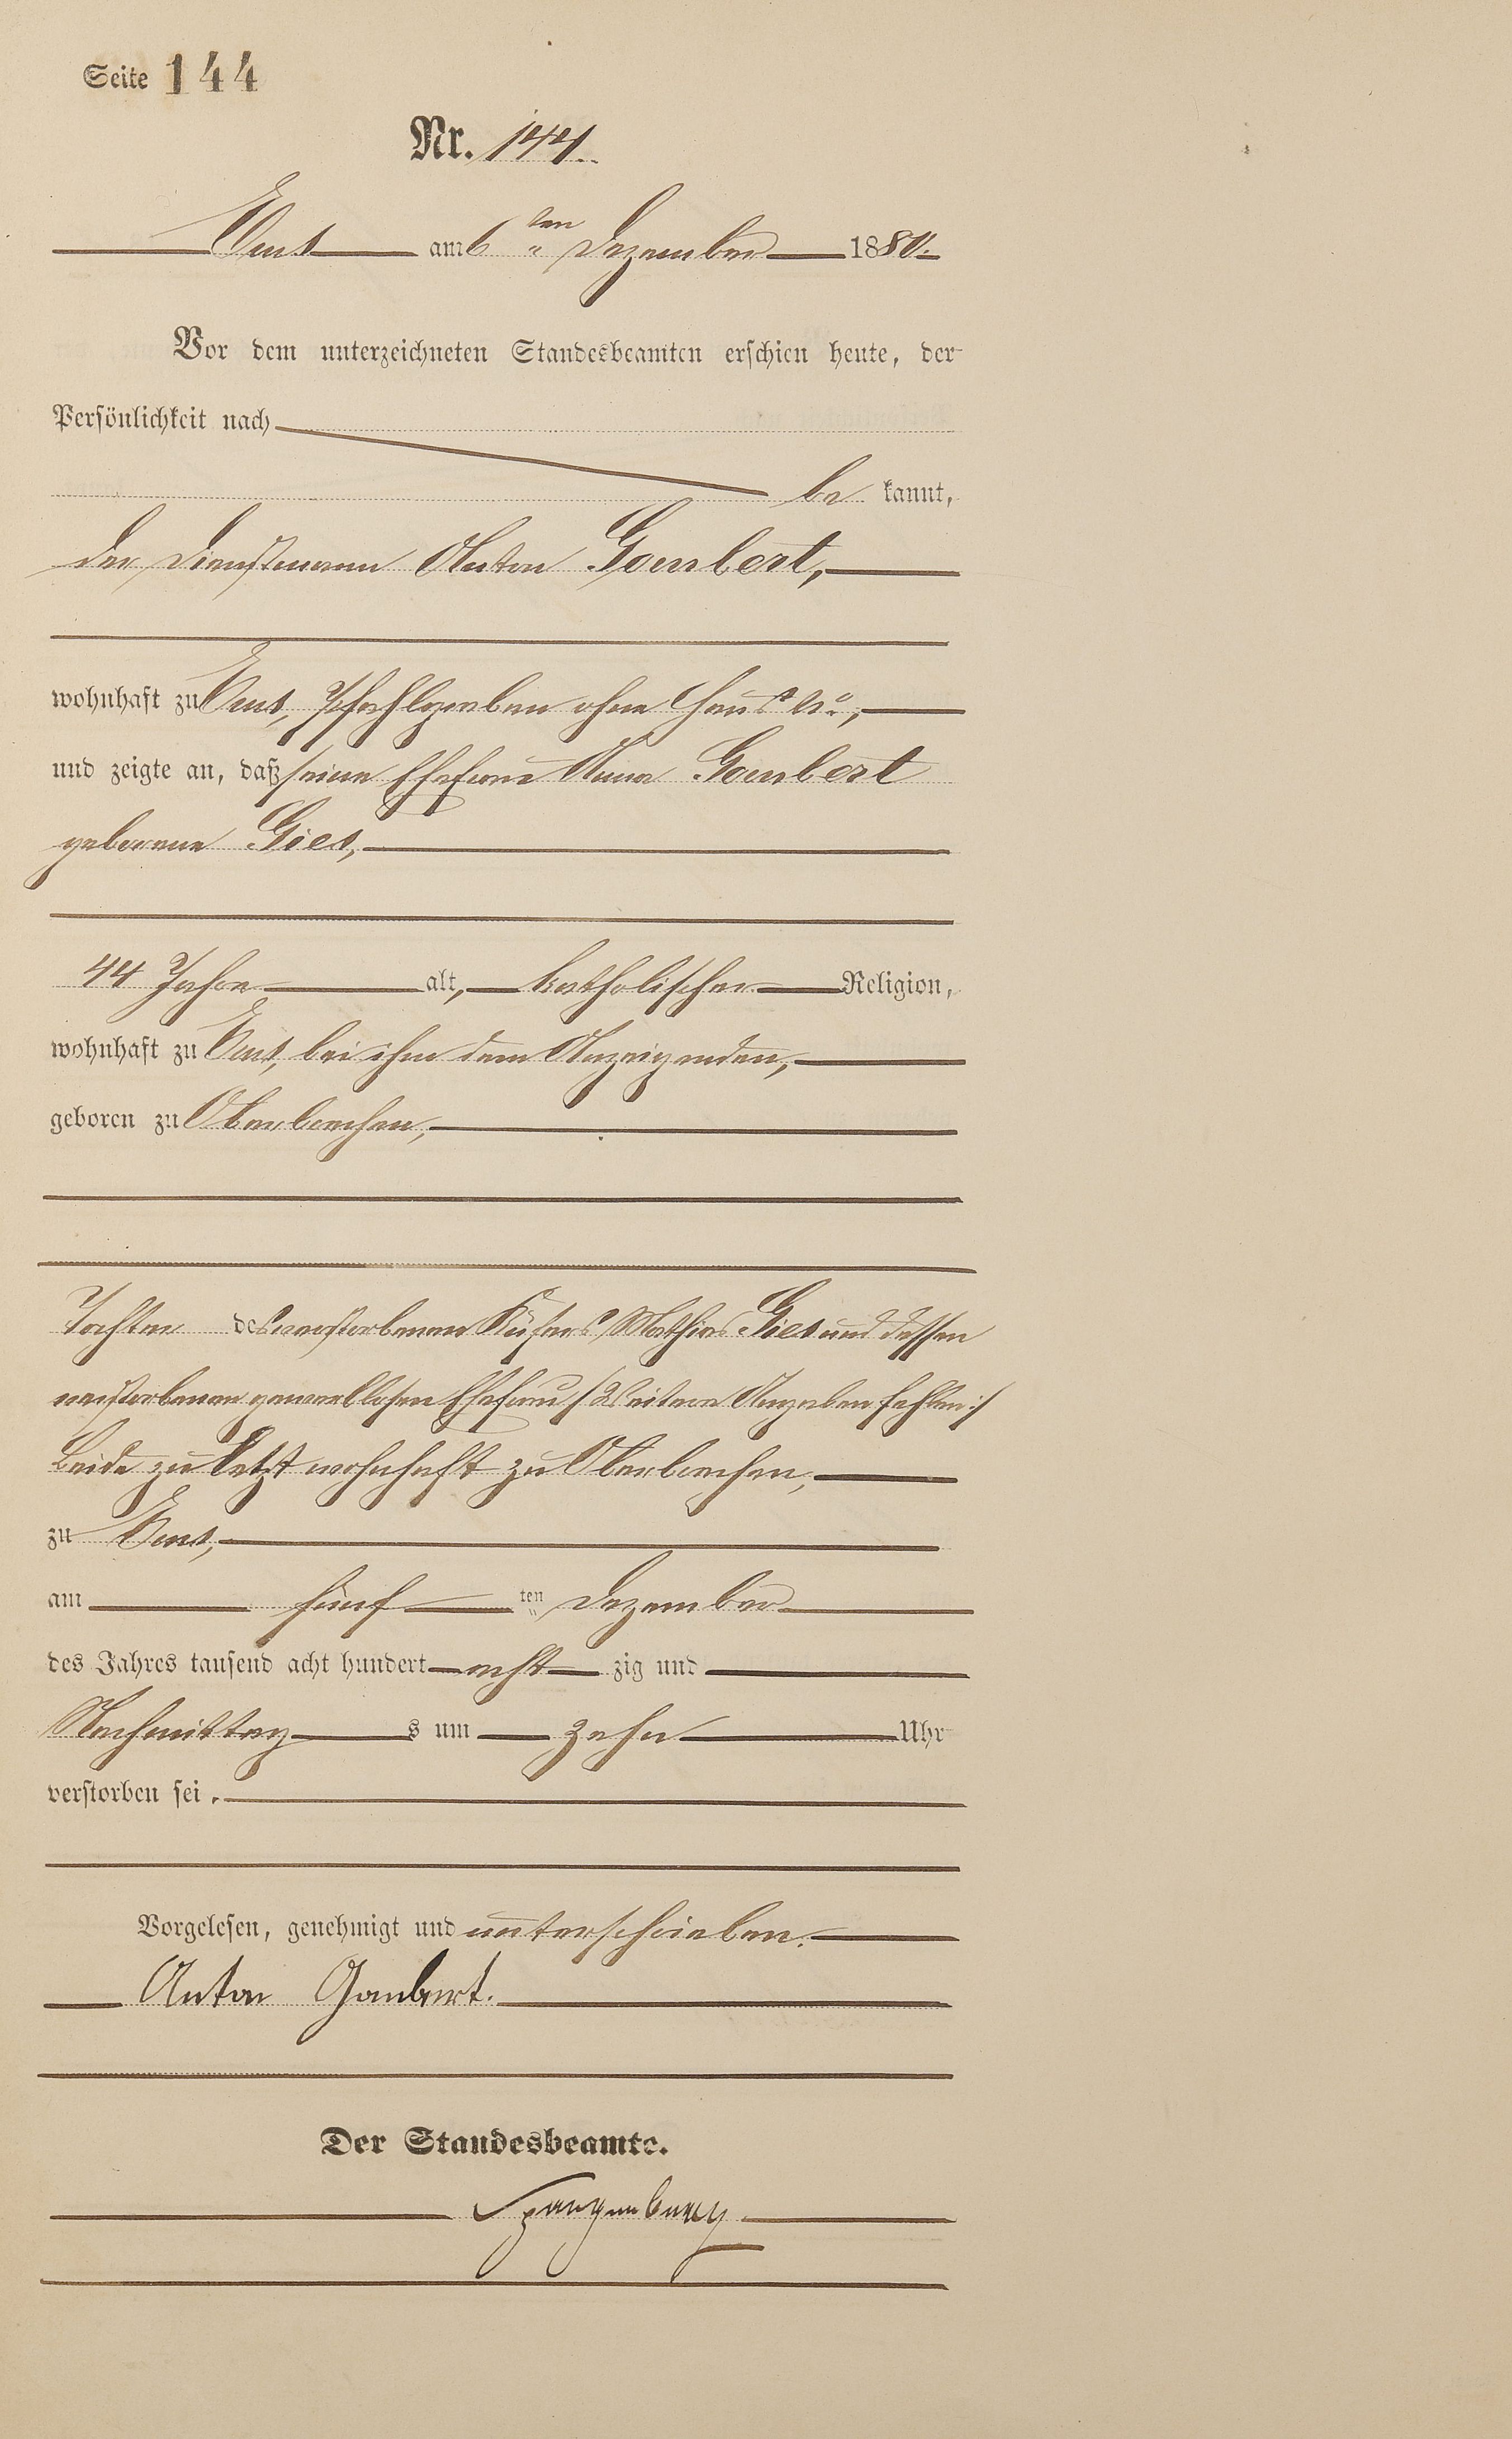 Seite 144
Nr. 144.
Ems am 6 ten Dezember 1880.
Vor dem unterzeichneten Standesbeamten erschien heute, der
Persönlichkeit nach
be kannt,
der Dienstmann Anton Gombert,
wohnhaft zu Ems, Pfahlgraben ohne Haus No.,
und zeigte an, daß seine Ehefrau Anna Gombert
geborene Gies,
44 Jahre alt, katholischer Religion,
wohnhaft zu Ems, bei ihm dem Anzeigenden,
geboren zu Oberbrechen,
Tochter des verstorbenen Küfers Mathias Gies und dessen
verstorbenen gewerblosen Ehefrau /: Weitere Angaben fehlen :/
Beide zu letzt wohnhaft zu Oberbrechen,
zu Ems,
am fünf ten Dezember
des Jahres tausend acht hundert acht zig und
Nachmittag s um zehn Uhr
verstorben sei.
Vorgelesen, genehmigt und unterschrieben.
Anton Gombert.
Der Standesbeamte.
Spangenberg